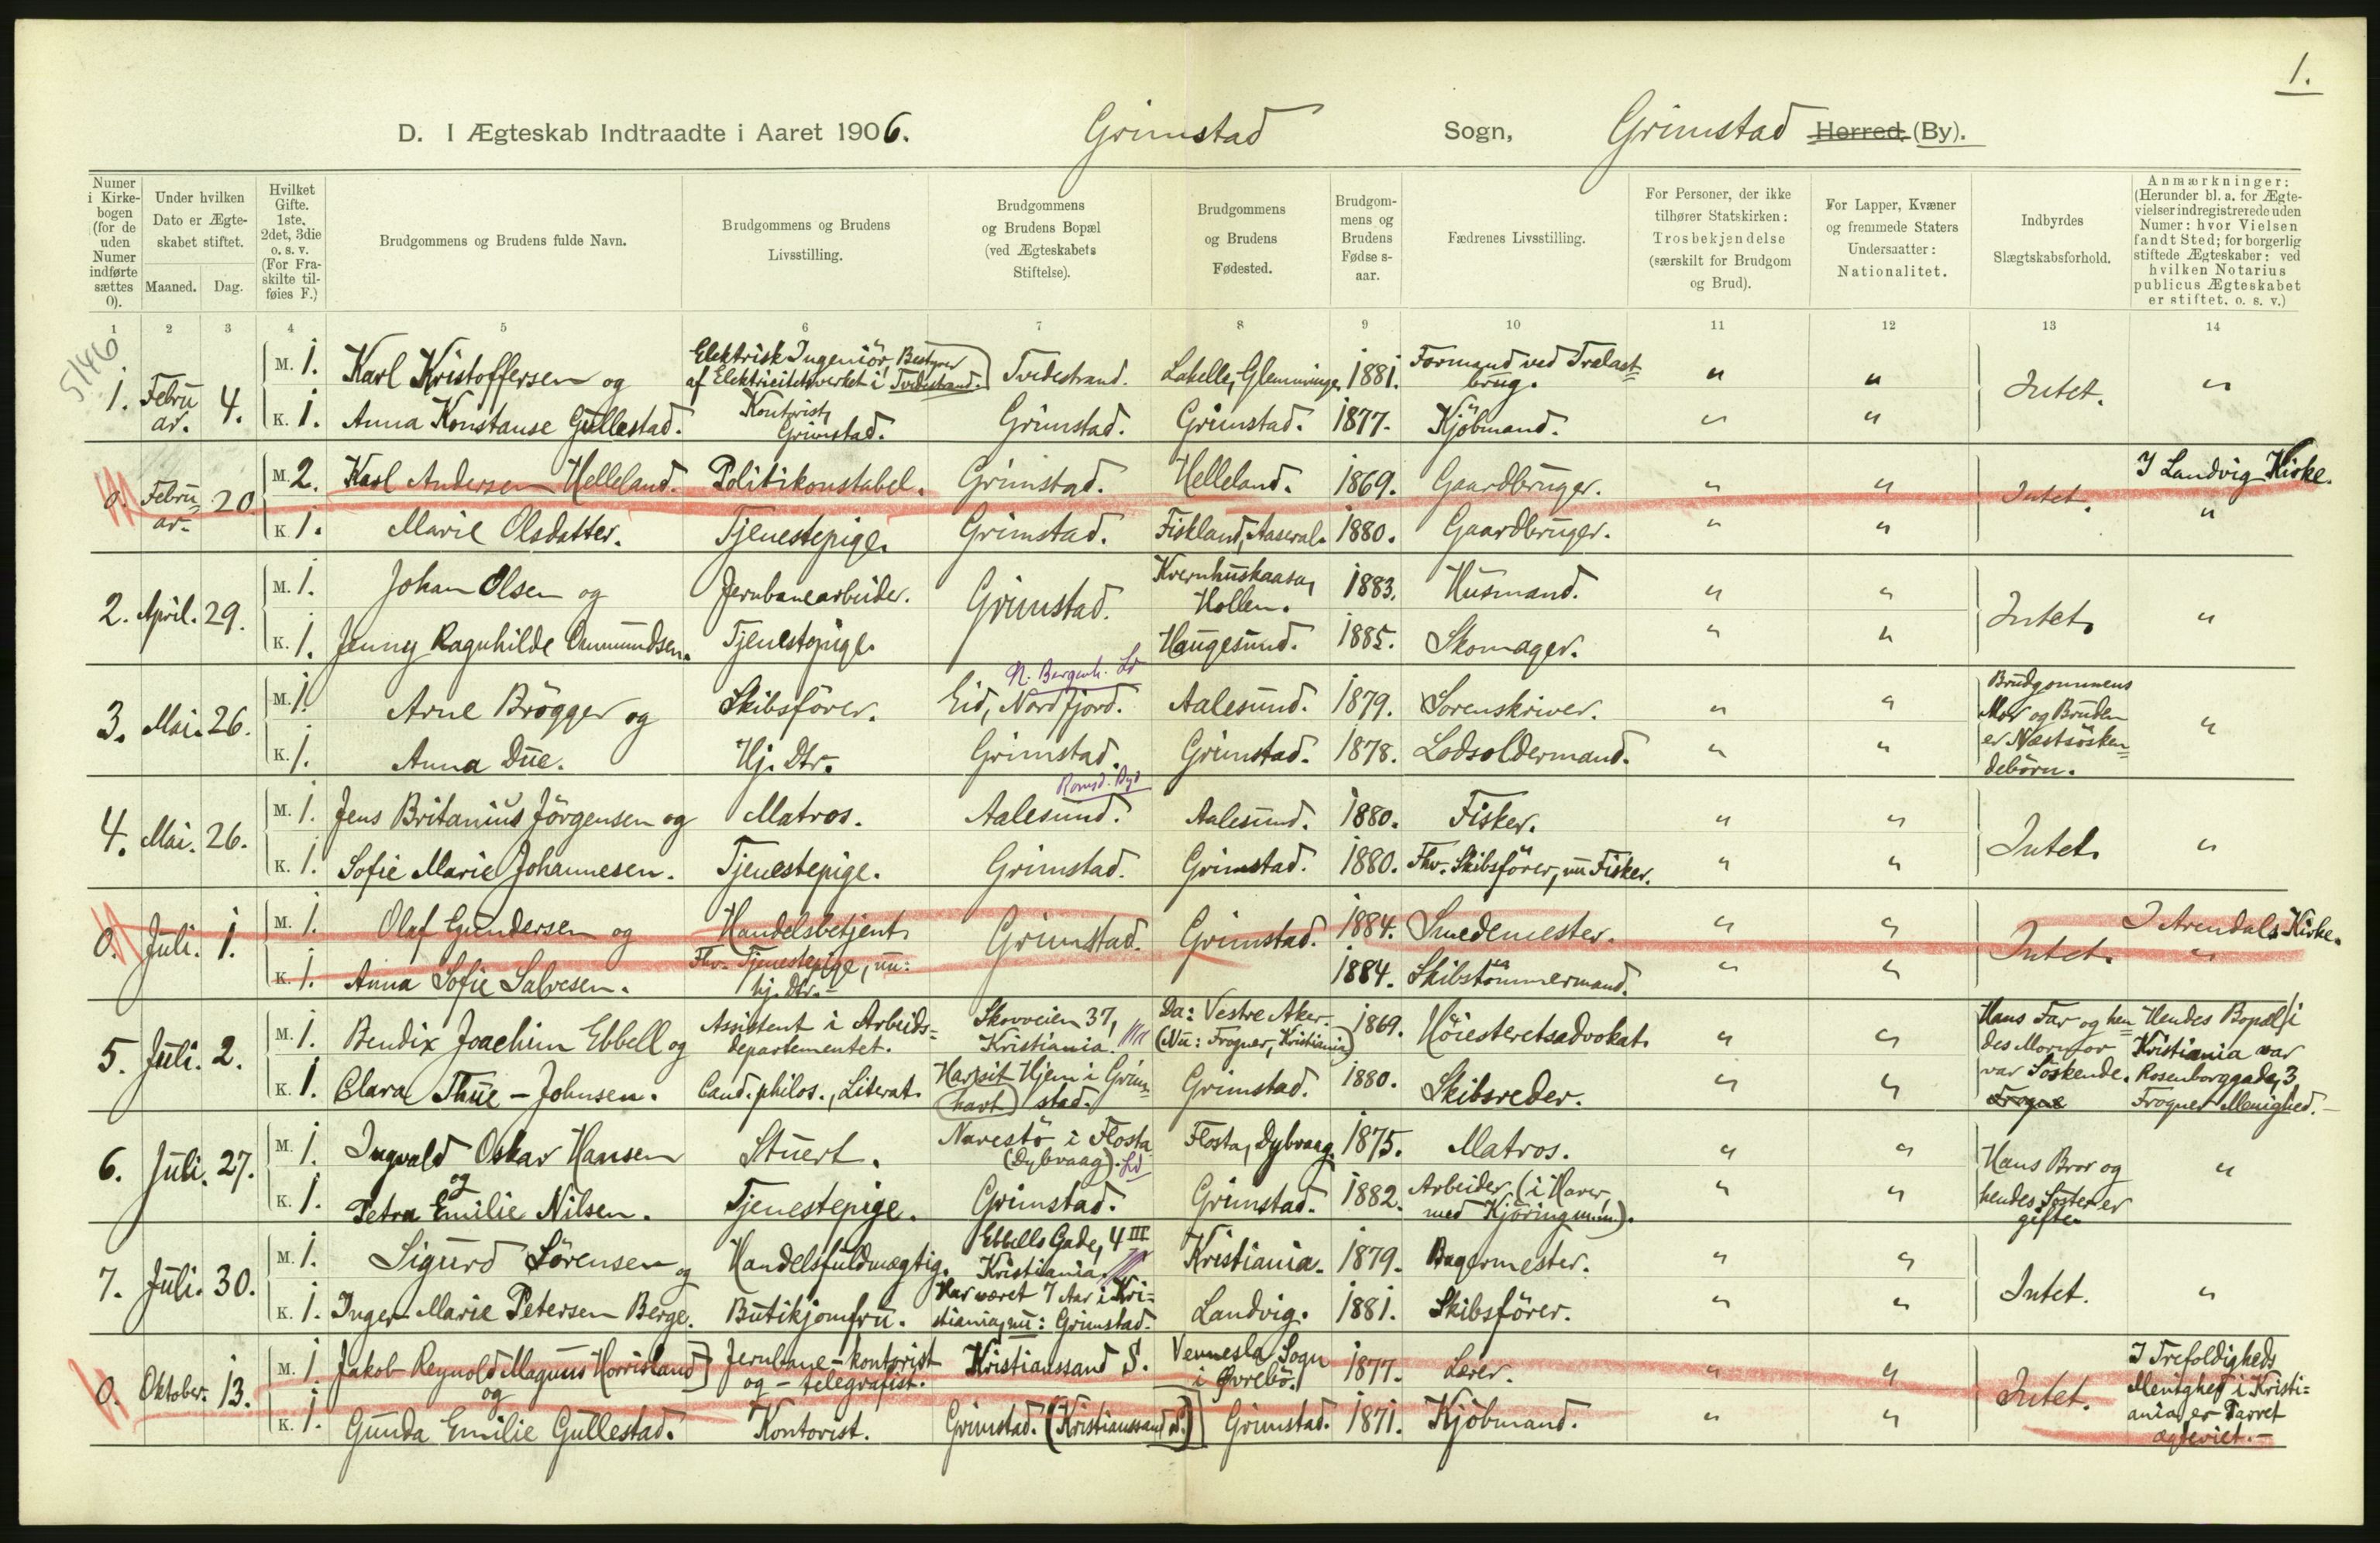 1.
D. I Ægteskab Indtraadte i Aaret 1906. Grimstad Sogn, Grimstad Herred, (By).
Numer i Kirkebogen (for de uden Numer indførte sættes 0).
Under hvilken Dato er Ægteskabet stiftet.
Maaned. Dag.
Hvilket Gifte. 1ste, 2det, 3die o. s. v. (For Fraskilte tilføies F.)
Brudgommens og Brudens fulde Navn.
Brudgommens og Brudens Livsstilling.
Brudgommens og Brudens Bopæl (ved Ægteskabets Stiftelse).
Brudgommens og Brudens Fødested.
Brudgommens og Brudens Fødselsaar.
Fædrenes Livsstilling.
For Personer, der ikke tilhører Statskirken: Trosbekjendelse (særskilt for Brudgom og Brud).
For Lapper, Kvæner og fremmede Staters Undersaatter: Nationalitet.
Indbyrdes Slægtskabsforhold.
Anmærkninger: (Herunder bl. a. for Ægtevielser indregistrerede uden Numer: hvor Vielsen fandt Sted; for borgerlig stiftede Ægteskaber: ved hvilken Notarius publicus Ægteskabet er stiftet, o. s. v.)
1 2 3 4 5 6 7 8 9 10 11 12 13 14
5146
1. Februar. 4. M. 1. Karl Kristoffersen og Elektrisk Ingeniör, Bestyrer af Elektricitetsverket i Tvedestrand. Tvedestrand. Labelle, Glemminge. 1881. Formand ved Trælastbrug. " " Intet. "
K. 1. Anna Konstanse Gullestad. Kontorist, Grimstad. Grimstad. Grimstad. 1877. Kjöbmand. " "
0. Februar. 20. M. 2. Karl Andersen Helleland. Politikonstabel. Grimstad. Helleland. 1869. Gaardbruger. " " Intet. I Landvig Kirke.
K. 1. Marie Olsdatter. Tjenestepige. Grimstad. Fiskland, Aaseral. 1880. Gaardbruger. " " "
2. April. 29. M. 1. Johan Olsen og Jernbanearbeider. Grimstad. Kvernhuskaasa, Hollen. 1883. Husmand. " " Intet. "
K. 1. Jenny Ragnhilde Ommundsen. Tjenestepige. Haugesund. 1885. Skomager. " "
N. Bergenh. Ld
3. Mai. 26. M. 1. Arne Brögger og Skibsförer. Eid, Nordfjord. Aalesund. 1879. Sorenskriver. " " Brudgommens Mor og Bruden er Næstsöskendebörn. "
K. 1. Anna Due. Hj. Dtr. Grimstad. Grimstad. 1878. Lodsoldermand. " "
Romsd.
4. Mai. 26. M. 1. Jens Britanius Jörgensen og Matros. Aalesund. Aalesund. 1880. Fisker. " " Intet. "
K. 1. Sofie Marie Johannesen. Tjenestepige. Grimstad. Grimstad. 1880. Fhv. Skibsförer, nu Fisker. " "
0. Juli. 1. M. 1. Olaf Gundersen og Handelsbetjent. Grimstad. Grimstad. 1884. Smedemester. " " Intet. I Arendals Kirke.
K. 1. Anna Sofie Salvesen. Fhv. Tjenestepige, nu: hj. Dtr. 1884. Skibstömmermand. " " "
5. Juli. 2. M. 1. Bendix Joachim Ebbell og Assistent i Arbeidsdepartementet. Skovveien 37, Kristiania. Da: Vestre Aker. (Nu: Frogner, Kristiania) 1869. Höiesteretsadvokat. " " Hans Far og hendes Mormor var Söskende. Hendes Bopæl i Kristiania var Rosenborggade, 3 Frogner Menighed.
K. 1. Clara Thue-Johnsen. Cand. philos., Literat. Har (havt) sit Hjem i Grimstad. Grimstad. 1880. Skibsreder. " "
6. Juli. 27. M. 1. Ingvald Oskar Hansen og Stuert. Narestö i Flosta (Dybvaag). Ld Flosta, Dybvaag. 1875. Matros. " " Hans Bror og hendes Söster er gifte. "
K. 1. Petra Emilie Nilsen. Tjenestepige. Grimstad. Grimstad. 1882. Arbeider (i Haver, med Kjöring m.m.). " "
7. Juli. 30. M. 1. Sigurd Sörensen og Handelsfuldmægtig. Ebbells Gade, 4 III Kristiania. Kristiania. 1879. Bagermester. " " Intet. "
K. 1. Inger Marie Petersen Berge. Butikjomfru. Har været 7 Aar i Kristiania, nu: Grimstad. Landvig. 1881. Skibsförer. " "
0. Oktober. 13. M. 1. Jakob Reynold Magnus Horrisland og Jernbane-kontorist og -telegrafist. Kristianssand S. Vennesla Sogn i Øvrebö. 1877. Lærer. " " Intet. I Trefoldigheds Menighed i Kristiania er Parret ægteviet.-
K. 1. Gunda Emilie Gullestad. Kontorist. Grimstad. (Kristianssand S.) Grimstad. 1871. Kjöbmand. " "